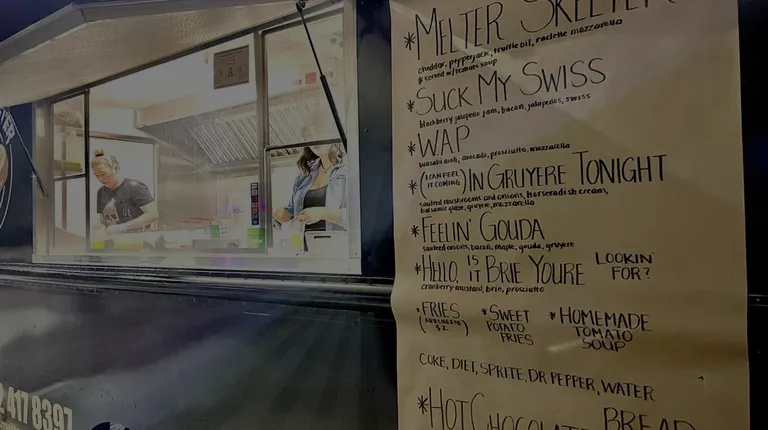 *MELTER SKELTER
cheddar, pepperjack, truffle oil, raclette mozzarella
& served w/tomato soup
*SUCK MY SWISS
blackberry jalapeño jam, bacon, jalapeños, swiss
*WAP
wasabi aioli, avocado, prosciutto, mozzarella
*(I CAN FEEL IT COMING) IN GRUYERE TONIGHT
sauteed mushrooms and onions, horseradish cream,
balsamic glaze, gruyere, mozzarella
*FEELIN' GOUDA
sauteed onions, bacon, maple, gouda, gruyere
*HELLO, IS IT BRIE YOURE LOOKIN' FOR?
cranberry-mustard, brie, prosciutto
*FRIES
(ADD CHEESE $2)
*SWEET
POTATO
FRIES
*HOMEMADE
TOMATO
SOUP
COKE, DIET, SPRITE, DR PEPPER, WATER
*HOT CHOCOLATE BREAD
417 8397